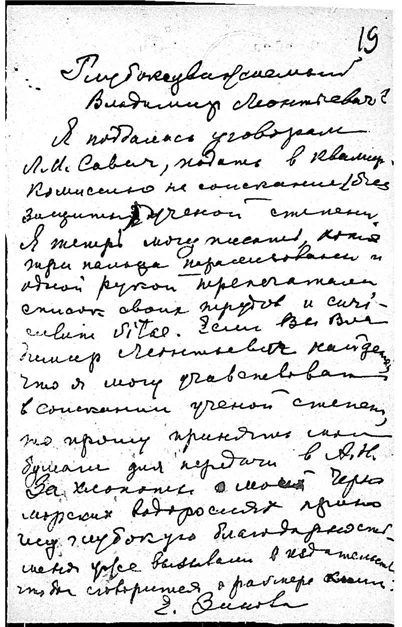 19
Глубокоуважаемый
Владимир Леонтьевич!
Я поддалась уговорам
Л.И. Савич, подать в Квалиф.
Комиссию на соискание (без
защиты) ученой степени.
Я теперь могу писать,
три пальца парализованы и
одной рукой перепечатала
список своих трудов и
vitae. Если Вы Вла
димир Леонтьевич найдете,
что я могу участвовать
в соискании ученой степени,
то прошу принять мои
бумаги для передачи в А.Н.
За хлопоты о моей Черно
морских водорослях приношу
глубокую благодарность
меня уже вызывали в издательство
чтобы сговориться о размере книги.
Е. Зинова